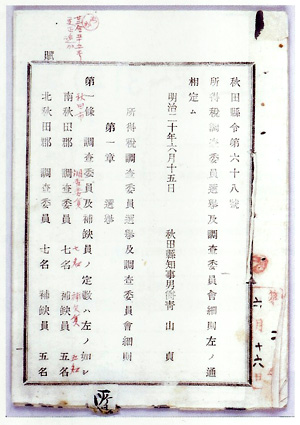 秋田縣令第六十八號
所得稅調査委員選擧及調査委員會細則左ノ通
相定ム
明治二十年六月十五日
秋田縣知事男爵青山貞
所得稅調査委員選擧及調査委員會細則
第一章 選擧
第一條 調査委員及補缺員ノ定數ハ左ノ如シ
秋田市 調査委員 七名 補缺員 五名
南秋田郡 調査委員 七名 補缺員 五名
北秋田郡 調査委員 七名 補缺員 五名
賦
六月十六日